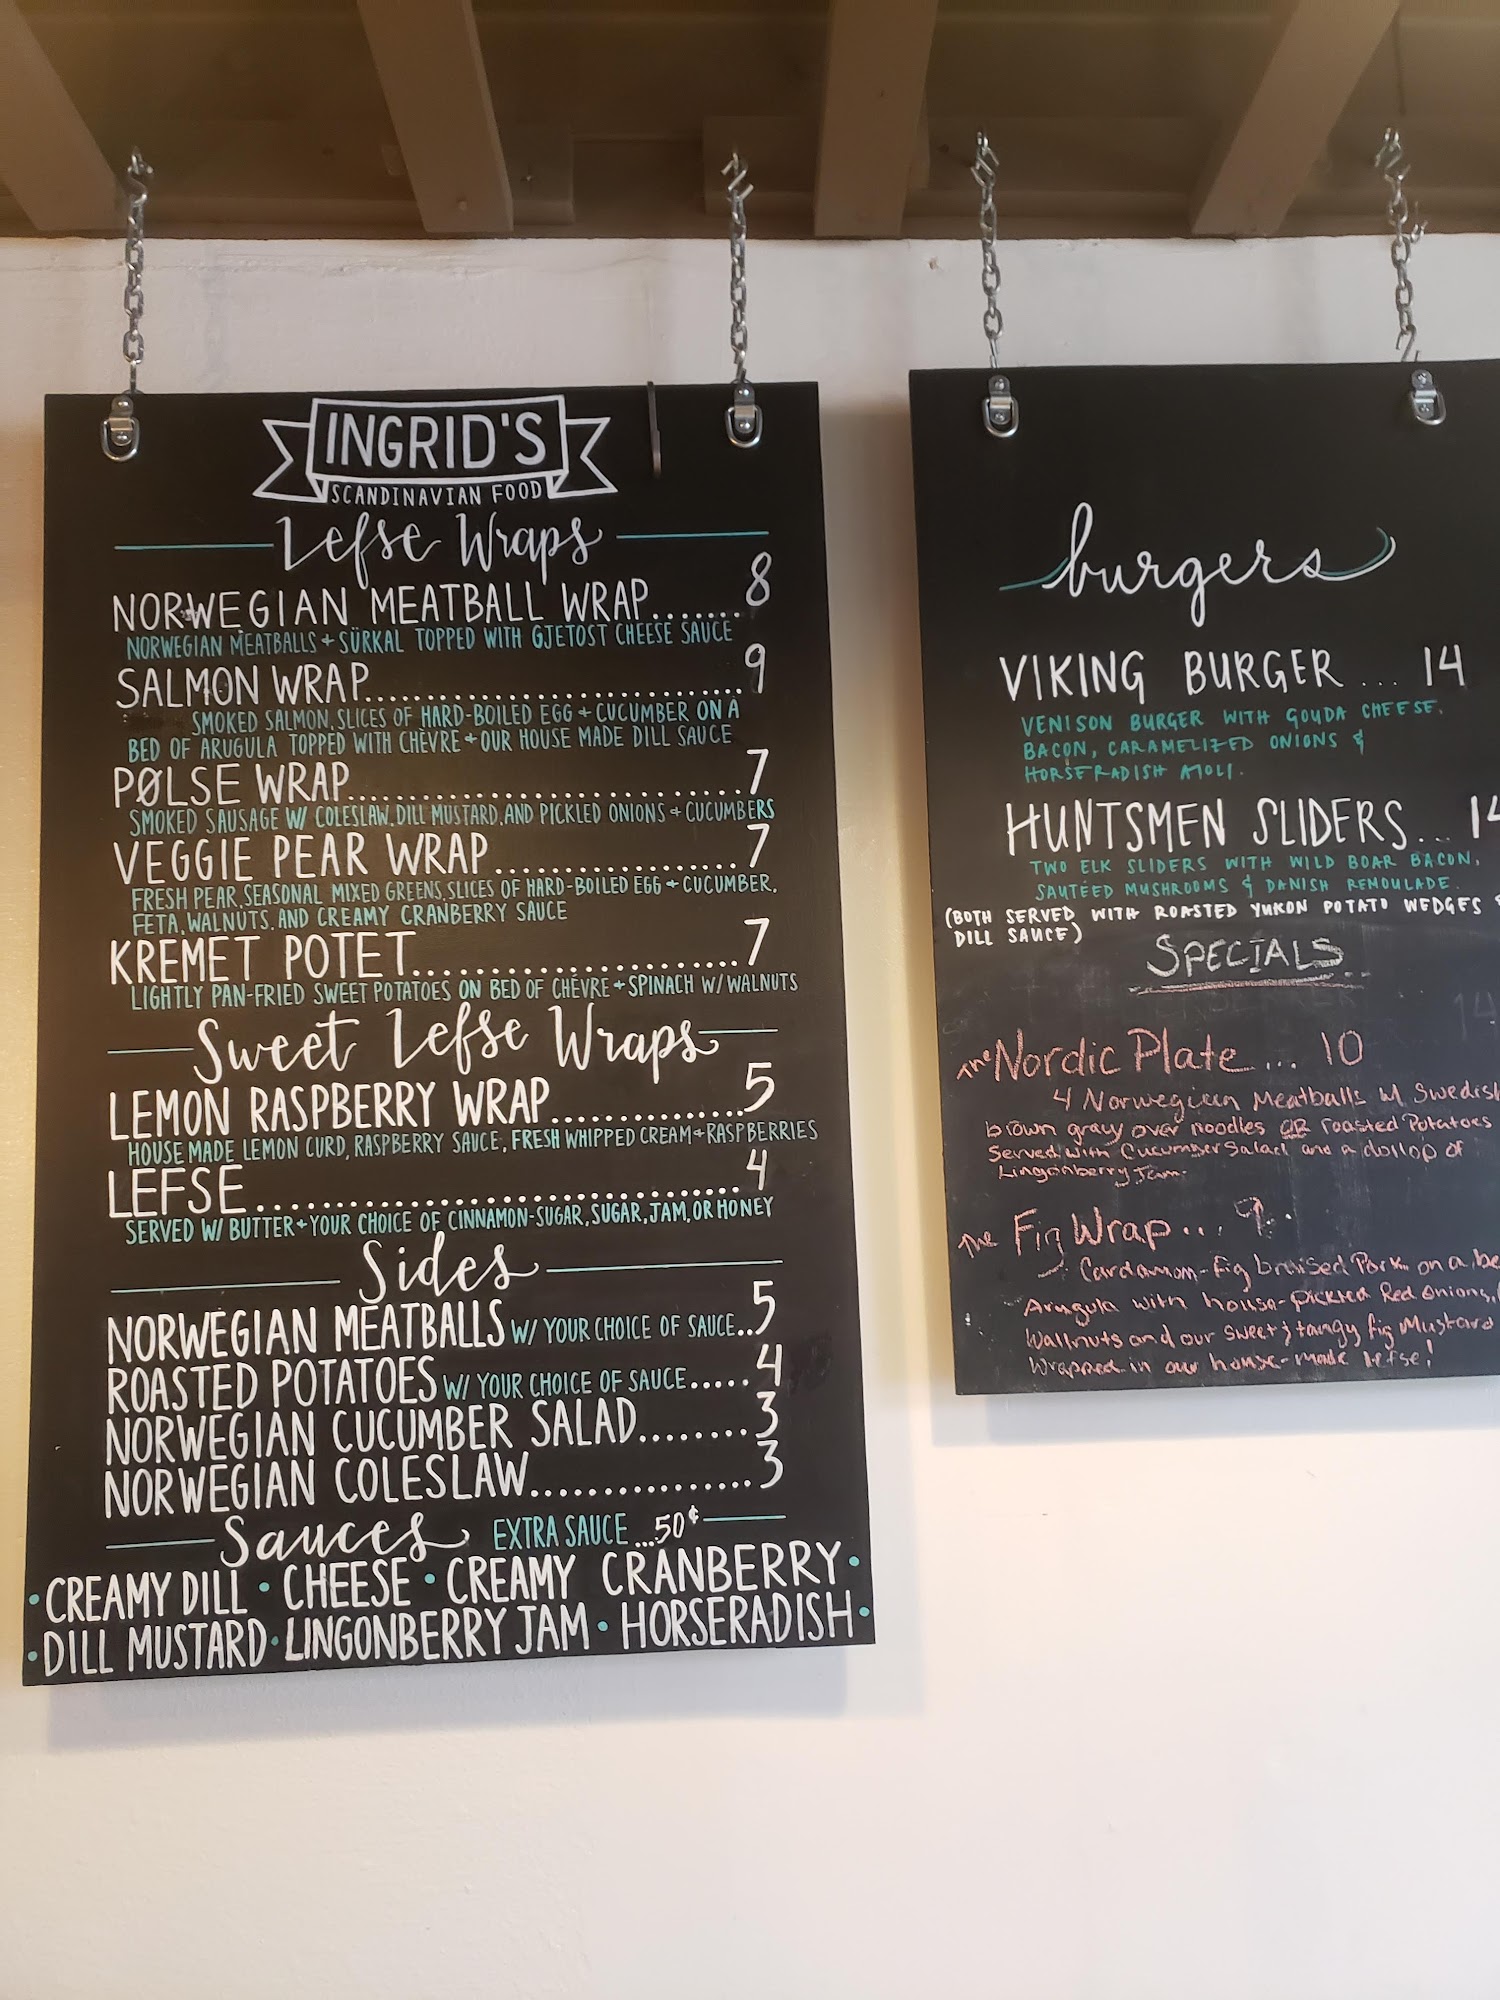 INGRID'S
SCANDINAVIAN FOOD
Lefse Wraps
NORWEGIAN MEATBALL WRAP.......8
NORWEGIAN MEATBALLS + SÜRKAL TOPPED WITH GJETOST CHEESE SAUCE
SALMON WRAP..............................9
SMOKED SALMON, SLICES OF HARD-BOILED EGG + CUCUMBER ON A
BED OF ARUGULA TOPPED WITH CHÈVRE + OUR HOUSE MADE DILL SAUCE
PØLSE WRAP................................7
SMOKED SAUSAGE W/ COLESLAW, DILL MUSTARD, AND PICKLED ONIONS + CUCUMBERS
VEGGIE PEAR WRAP...................7
FRESH PEAR, SEASONAL MIXED GREENS, SLICES OF HARD-BOILED EGG + CUCUMBER,
FETA, WALNUTS, AND CREAMY CRANBERRY SAUCE
KREMET POTET.........................7
LIGHTLY PAN-FRIED SWEET POTATOES ON BED OF CHÉVRE + SPINACH W/ WALNUTS
Sweet Lefse Wraps
LEMON RASPBERRY WRAP...............5
HOUSE MADE LEMON CURD, RASPBERRY SAUCE, FRESH WHIPPED CREAM + RASPBERRIES
LEFSE.....................................4
SERVED W/ BUTTER + YOUR CHOICE OF CINNAMON-SUGAR, SUGAR, JAM, OR HONEY
Sides
NORWEGIAN MEATBALLS W/ YOUR CHOICE OF SAUCE..5
ROASTED POTATOES W/ YOUR CHOICE OF SAUCE.....4
NORWEGIAN CUCUMBER SALAD........3
NORWEGIAN COLESLAW.................3
Sauces EXTRA SAUCE ...50¢
• CREAMY DILL • CHEESE • CREAMY CRANBERRY •
• DILL MUSTARD • LINGONBERRY JAM • HORSERADISH •
burgers
VIKING BURGER ... 14
VENISON BURGER WITH GOUDA CHEESE,
BACON, CARAMELIZED ONIONS &
HORSERADISH AIOLI.
HUNTSMEN SLIDERS... 14
TWO ELK SLIDERS WITH WILD BOAR BACON,
SAUTÉED MUSHROOMS & DANISH REMOULADE.
(BOTH SERVED WITH ROASTED YUKON POTATO WEDGES &
DILL SAUCE)
SPECIALS
14
The Nordic Plate ... 10
4 Norwegian Meatballs w/ Swedish
brown gravy over noodles OR roasted Potatoes
Served with Cucumber Salad and a dollop of
Lingonberry Jam.
The Fig Wrap... 9.
Cardamom-Fig braised Pork on a be
Arugula with house-pickled Red onions,
Wallnuts and our sweet & tangy fig Mustard
Wrapped in our house-made lefse!